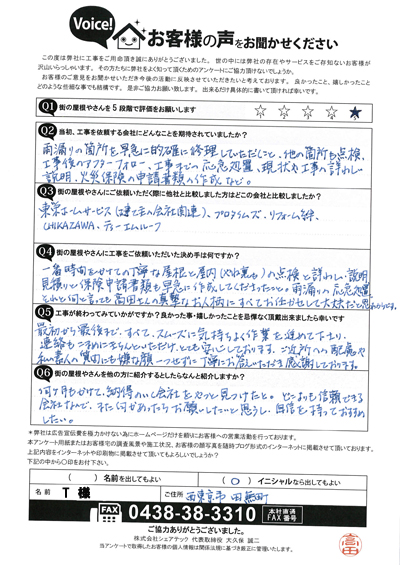 Voice!
お客様の声をお聞かせください
この度は弊社に工事をご用命頂き誠にありがとうございました。世の中には弊社の存在やサービスをご存知ないお客様が
沢山いらっしゃいます。その方たちに弊社をよく知って頂くためのアンケートにご協力頂けないでしょうか。
お客様のご意見をお聞かせいただき今後の活動に反映させていただきたいと考えております。良かったこと、嬉しかったこと
どのような些細な事でも結構です。是非ご協力お願い致します。出来るだけ具体的に書いて頂ければ幸いです。
Q1 街の屋根やさんを5段階で評価をお願いします ☆ ☆ ☆ ☆ ★
Q2 当初、工事を依頼する会社にどんなことを期待されていましたか?
雨漏りの箇所を早急に的確に修理していただくこと、他の箇所も点検、
工事後のアフターフォロー、工事までの応急処置、現状と工事の詳わしい
説明、火災保険の申請書類の作成など。
Q3 街の屋根やさんにご依頼いただいた際に他社と比較しました方はどこの会社と比較しましたか?
東栄ホームサービス(建て主の会社関連)、プロタイムズ、リフォーム絆、
UCHIKAZAWA、ティームルーフ
Q4 街の屋根やさんに工事をご依頼いただいた決め手は何ですか?
一番時間をかけての丁寧な屋根と屋内(
)の点検と詳わしい説明
見積りと保険申請書類も早急に作成してくださったこと。雨漏りの応急処置、
それと何と言っても高田さんの真摯なお人柄にすべてお任せして大丈夫だと思えたからです。
Q5 工事が終わってみていかがですか?良かった事・嬉しかったことを忌憚なく頂戴出来ましたら幸いです
最初から最後まで、すべて、スムーズに気持ちよく作業を進めて下さり、
連絡もこまめにきちんといただけて、とても安心しております。ご近所への配慮や
私の素人の質問にも嫌な顔一つせずに丁寧にお答えいただき感謝しております。
Q6 街の屋根やさんを他の方に紹介するとしたらなんと紹介しますか?
何ヶ月もかけて、納得のいく会社をやっと見つけたこと。とってもも信頼できる
会社なんで、また何かあったらお願いしたいと思うし、自信を持っておすすめ
したい。
＊弊社は広告宣伝費を極力かけない為にホームページだけを頼りにお客様への営業活動を行っております。
本アンケート用紙またはお客様宅の調査風景や施工状況、お客様の顔写真を随時ブログ形式のインターネットに掲載させて頂いております。
上記内容をインターネットや印刷物に掲載させて頂いてもよろしいでしょうか?
下記の中から○印をお付け下さい。
( )名前を出してもよい (○)イニシャルなら出してもよい
名前 T 様 ご住所 西東京市 田無町
FAX 0438-38-3310 本社直通 FAX番号
ご協力ありがとうございました。
株式会社シェアテック 代表取締役 大久保 誠二
当アンケートで取得したお客様の個人情報は関係法規に基づき厳正に管理いたします。